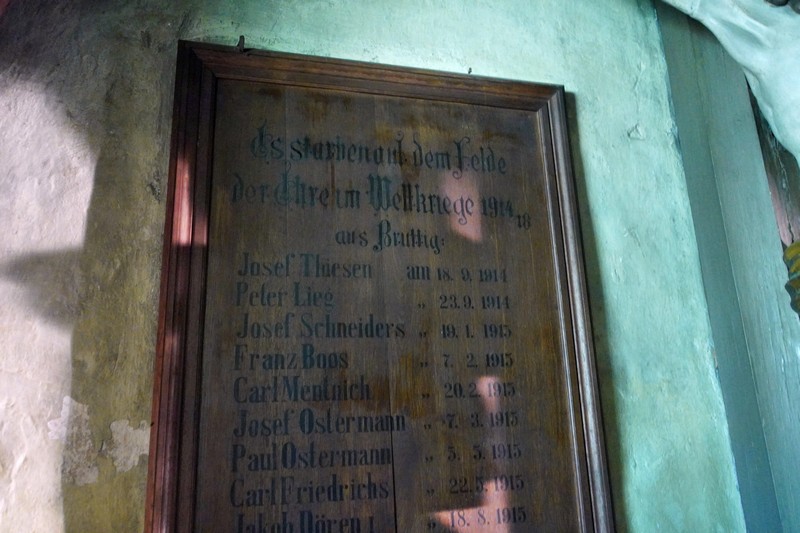 Es starben auf dem Felde
der Ehre im Weltkriege 1914/18
aus Bruttig:
Josef Thiesen am 18. 9. 1914
Peter Lieg „ 23. 9. 1914
Josef Schneiders „ 19. 1. 1915
Franz Boos „ 7. 2. 1915
Carl Mentnich „ 20. 2. 1915
Josef Ostermann „ 7. 3. 1915
Paul Ostermann „ 5. 5. 1915
Carl Friedrichs „ 22. 5. 1915
Jakob Dören I „ 18. 8. 1915